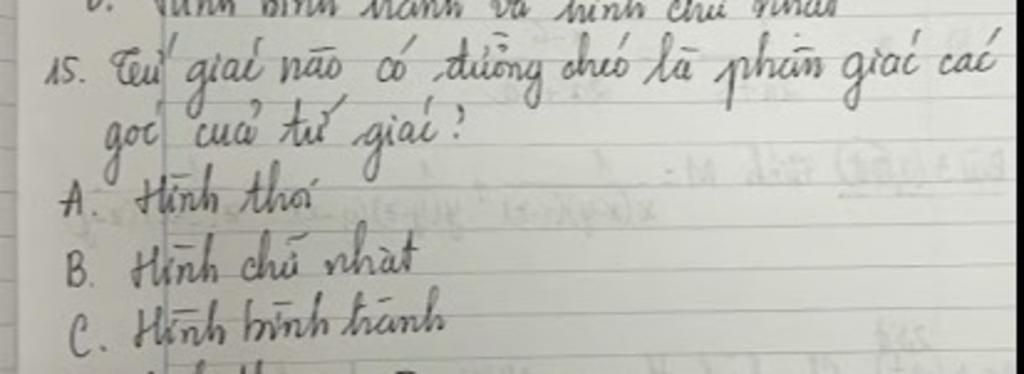 D. Hình bình hành và hình chữ nhật
15. Tứ giác nào có đường chéo là phân giác các
góc của tứ giác?
A. Hình thoi
B. Hình chữ nhật
C. Hình bình hành